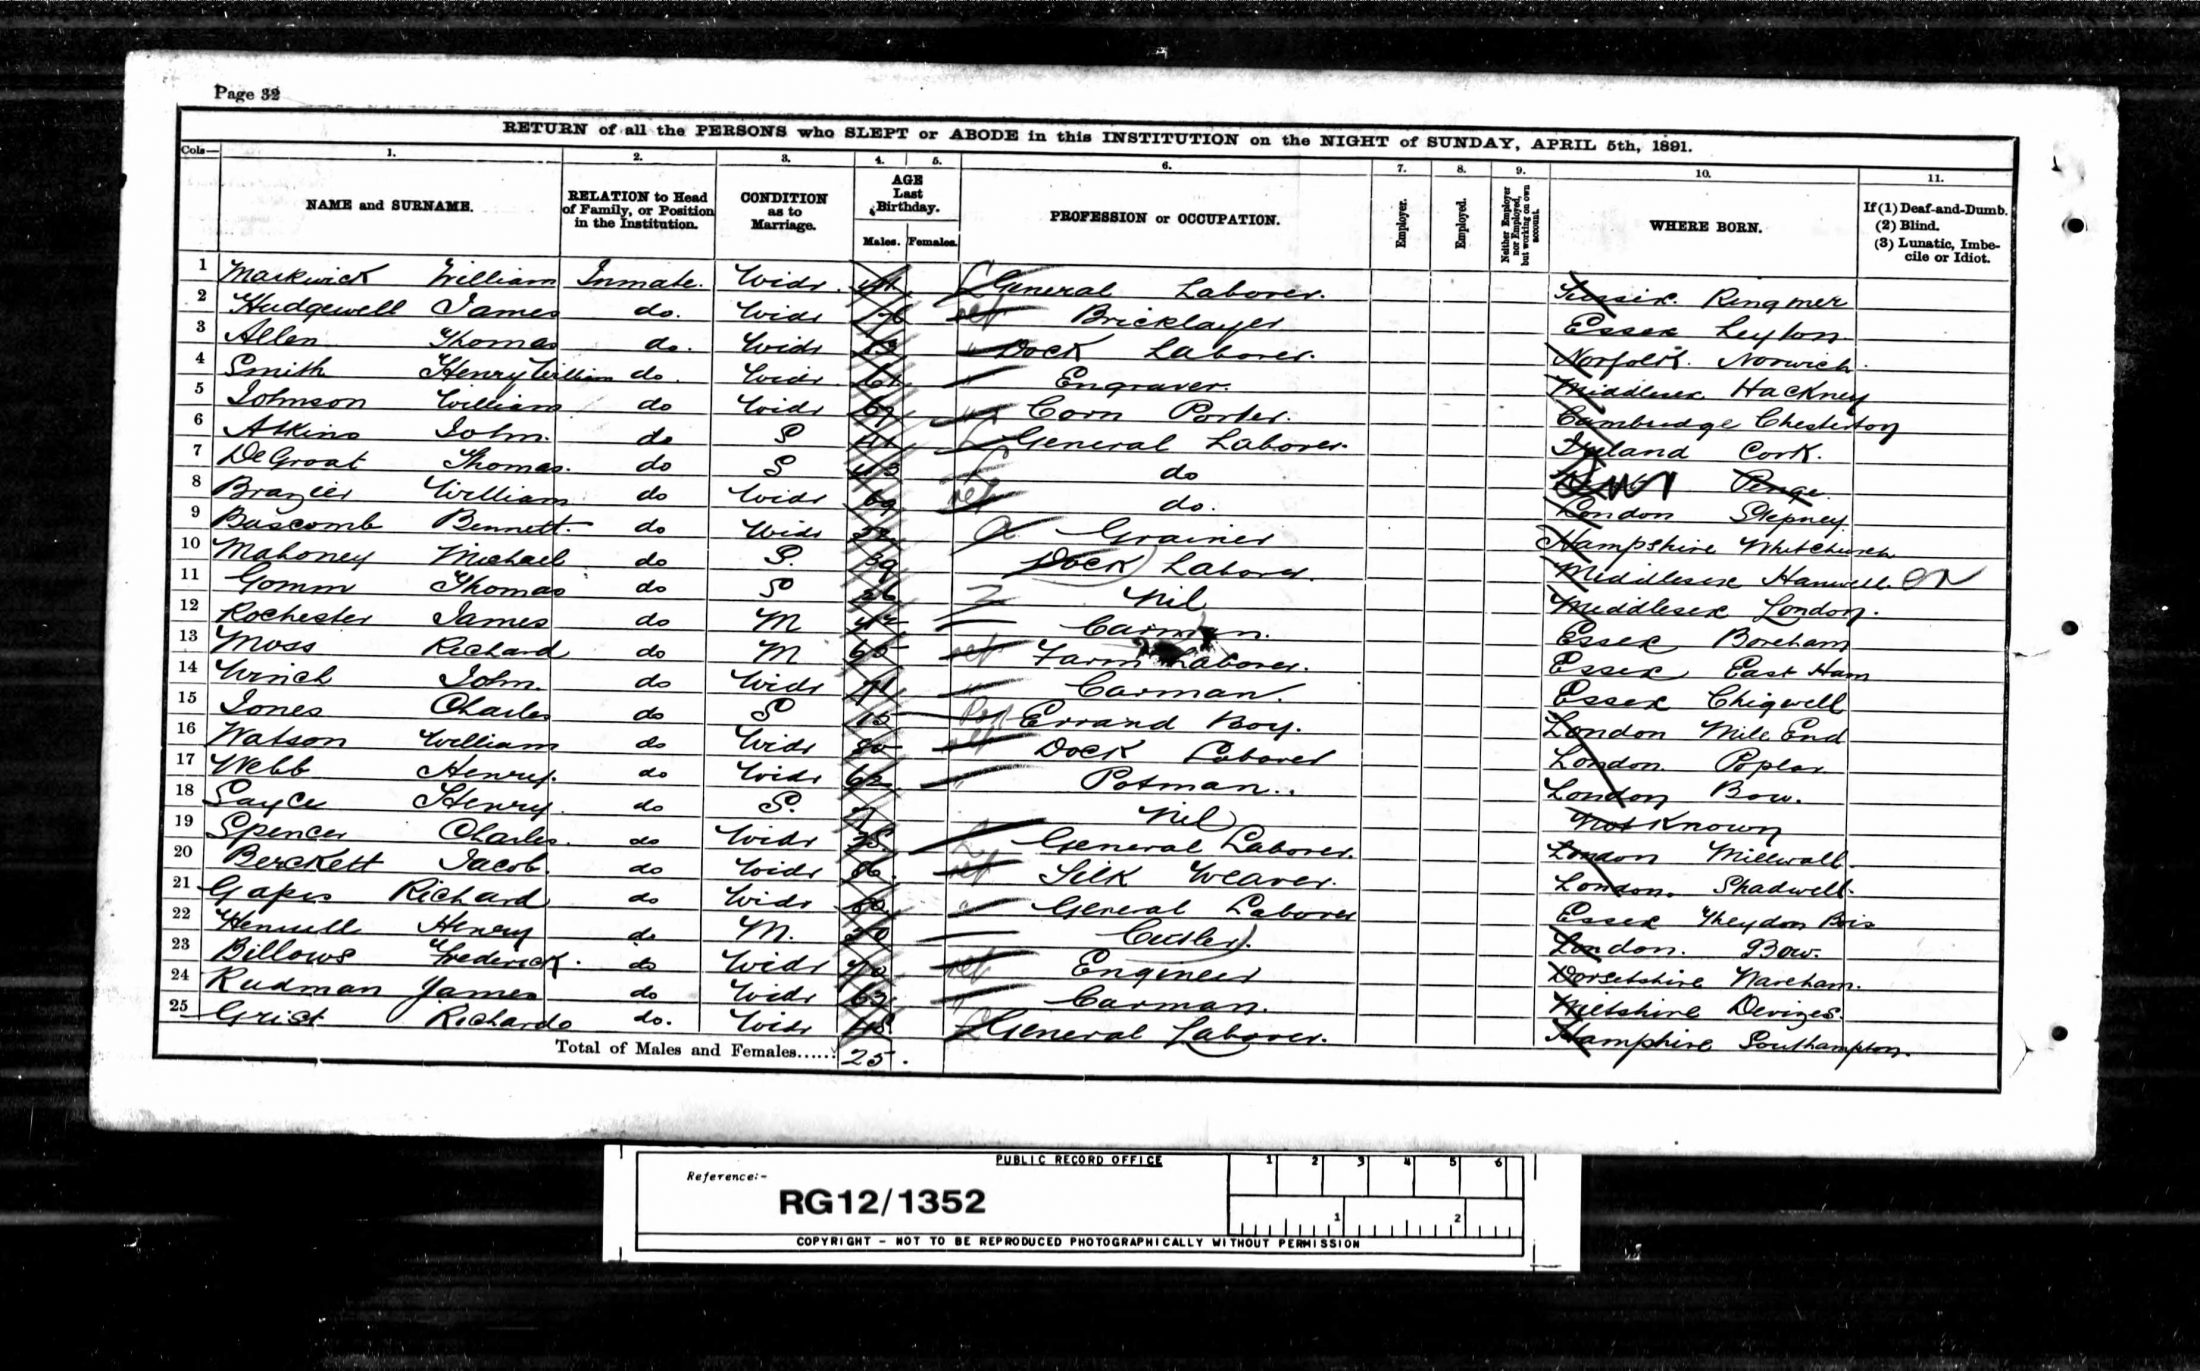 Page 32
RETURN of all the PERSONS who SLEPT or ABODE in this INSTITUTION on the NIGHT of SUNDAY, APRIL 5th, 1891.
Cols— 1. 2. 3. 4. 5. 6. 7. 8. 9. 10. 11.
NAME and SURNAME. RELATION to Head of Family, or Position in the Institution. CONDITION as to Marriage. AGE Last Birthday. Males. Females. PROFESSION or OCCUPATION. Employer. Employed. Neither Employer nor Employed, but working on own account. WHERE BORN. If (1) Deaf-and-Dumb. (2) Blind. (3) Lunatic, Imbecile or Idiot.
1 Markwick William Inmate. Widr. General Laborer. Sussex Ringmer
2 Hudgewell James do. Widr 76 ret Bricklayer Essex Leyton
3 Allen Thomas do. Widr 73 Dock Laborer. Norfolk Norwich
4 Smith Henry William do. Widr 61 Engraver. Middlesex Hackney
5 Johnson William do Widr 67 Corn Porter. Cambridge Chesterton
6 Atkins John. do S General Laborer. Ireland Cork.
7 DeGroat Thomas. do S 43 do Penge
8 Brazier William do Widr 69 ret do. London Stepney
9 Bascomb Bennett do Widr Grainer Hampshire Whitchurch
10 Mahoney Michael do S. 39 Dock Laborer. Middlesex Hanwell
11 Gomm Thomas do S 26 Nil Middlesex London.
12 Rochester James do M Carman. Essex Boreham
13 Moss Richard do M 65 ret Farm Laborer. Essex East Ham
14 Winch John. do Widr 71 Carman. Essex Chigwell
15 Jones Charles do S 15 Errand Boy. London Mile End
16 Watson William do Widr 80 ret Dock Laborer London Poplar
17 Webb Henry. do Widr 62 Potman.. London Bow.
18 Sayce Henry do S. Nil Not Known
19 Spencer Charles. do Widr 35 General Laborer. London Millwall
20 Berckett Jacob. do Widr 86 ret Silk Weaver. London. Shadwell.
21 Gapes Richard do Widr General Laborer Essex Theydon Bois
22 Henry do M. Cutler. London. Bow.
23 Billows Frederick. do Widr 70 ret Engineer Dorsetshire Wareham.
24 Rudman James do Widr 63 Carman. Wiltshire Devizes.
25 Grist Richard do. Widr General Laborer. Hampshire Southampton.
Total of Males and Females...... 25.
PUBLIC RECORD OFFICE
Reference:-
RG12/1352
1 2 3 4 5 6
1 2
COPYRIGHT - NOT TO BE REPRODUCED PHOTOGRAPHICALLY WITHOUT PERMISSION